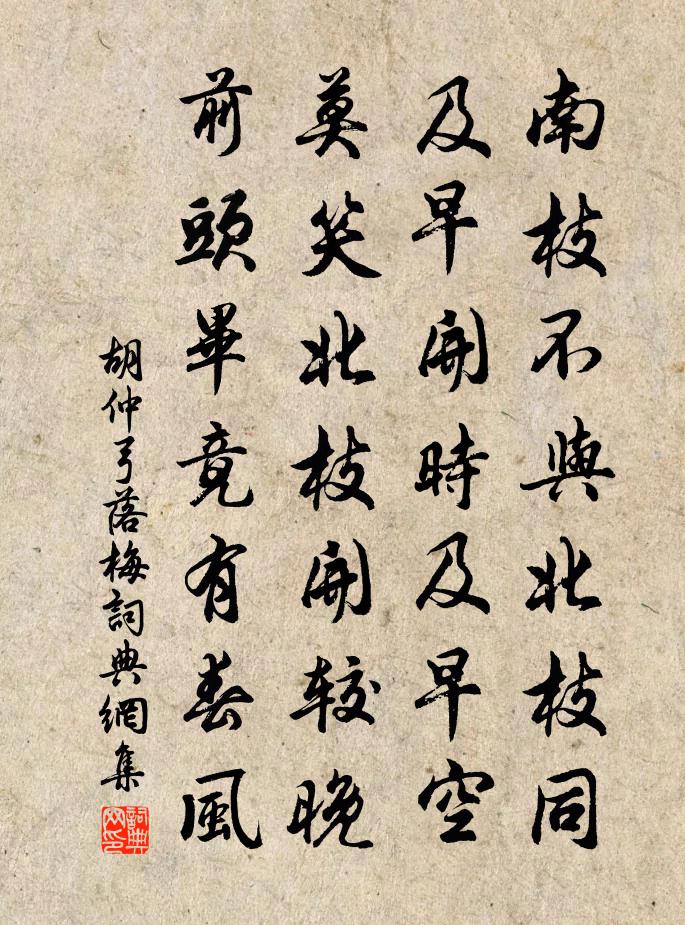 南枝不與北枝同
及早開時及早空
莫笑北枝開較晚
前頭畢竟有春風
胡仲弓落梅詞典網集
詞典网印